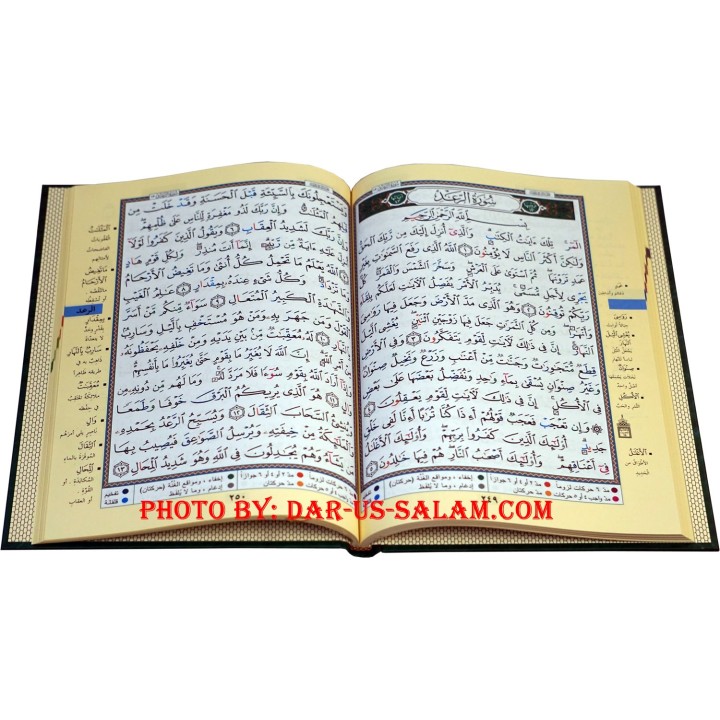 سُورَةُ الرَّعْدِ
بِسْمِ اللَّهِ الرَّحْمَٰنِ الرَّحِيمِ
الٓمٓر تِلْكَ ءَايَٰتُ الْكِتَٰبِ وَالَّذِىٓ أُنزِلَ إِلَيْكَ مِن رَّبِّكَ الْحَقُّ
وَلَٰكِنَّ أَكْثَرَ النَّاسِ لَا يُؤْمِنُونَ ١ اللَّهُ الَّذِى رَفَعَ السَّمَٰوَٰتِ بِغَيْرِ
عَمَدٍ تَرَوْنَهَا ثُمَّ اسْتَوَىٰ عَلَى الْعَرْشِ وَسَخَّرَ الشَّمْسَ وَالْقَمَرَ كُلٌّ
يَجْرِى لِأَجَلٍ مُّسَمًّى يُدَبِّرُ الْأَمْرَ يُفَصِّلُ الْءَايَٰتِ لَعَلَّكُم بِلِقَآءِ
رَبِّكُمْ تُوقِنُونَ ٢ وَهُوَ الَّذِى مَدَّ الْأَرْضَ وَجَعَلَ فِيهَا رَوَٰسِىَ
وَأَنْهَٰرًا وَمِن كُلِّ الثَّمَرَٰتِ جَعَلَ فِيهَا زَوْجَيْنِ اثْنَيْنِ يُغْشِى الَّيْلَ
النَّهَارَ إِنَّ فِى ذَٰلِكَ لَءَايَٰتٍ لِّقَوْمٍ يَتَفَكَّرُونَ ٣ وَفِى الْأَرْضِ
قِطَعٌ مُّتَجَٰوِرَٰتٌ وَجَنَّٰتٌ مِّنْ أَعْنَٰبٍ وَزَرْعٌ وَنَخِيلٌ صِنْوَانٌ
وَغَيْرُ صِنْوَانٍ يُسْقَىٰ بِمَآءٍ وَٰحِدٍ وَنُفَضِّلُ بَعْضَهَا عَلَىٰ بَعْضٍ
فِى الْأُكُلِ إِنَّ فِى ذَٰلِكَ لَءَايَٰتٍ لِّقَوْمٍ يَعْقِلُونَ ٤
وَإِن تَعْجَبْ فَعَجَبٌ قَوْلُهُمْ أَءِذَا كُنَّا تُرَٰبًا أَءِنَّا لَفِى خَلْقٍ
جَدِيدٍ أُولَٰٓئِكَ الَّذِينَ كَفَرُوا بِرَبِّهِمْ وَأُولَٰٓئِكَ الْأَغْلَٰلُ
فِىٓ أَعْنَاقِهِمْ وَأُولَٰٓئِكَ أَصْحَٰبُ النَّارِ هُمْ فِيهَا خَٰلِدُونَ ٥
٢٤٩
عمد
رواسي
صنوان
الأكل
الأغلال
وَيَسْتَعْجِلُونَكَ بِالسَّيِّئَةِ قَبْلَ الْحَسَنَةِ وَقَدْ خَلَتْ مِن
قَبْلِهِمُ الْمَثُلَٰتُ وَإِنَّ رَبَّكَ لَذُو مَغْفِرَةٍ لِّلنَّاسِ عَلَىٰ ظُلْمِهِمْ
وَإِنَّ رَبَّكَ لَشَدِيدُ الْعِقَابِ ٦ وَيَقُولُ الَّذِينَ كَفَرُوا لَوْلَآ
أُنزِلَ عَلَيْهِ ءَايَةٌ مِّن رَّبِّهِ إِنَّمَآ أَنتَ مُنذِرٌ وَلِكُلِّ قَوْمٍ هَادٍ
٧ اللَّهُ يَعْلَمُ مَا تَحْمِلُ كُلُّ أُنثَىٰ وَمَا تَغِيضُ الْأَرْحَامُ
وَمَا تَزْدَادُ وَكُلُّ شَىْءٍ عِندَهُ بِمِقْدَارٍ ٨ عَٰلِمُ الْغَيْبِ
وَالشَّهَٰدَةِ الْكَبِيرُ الْمُتَعَالِ ٩ سَوَآءٌ مِّنكُم مَّنْ أَسَرَّ
الْقَوْلَ وَمَن جَهَرَ بِهِ وَمَنْ هُوَ مُسْتَخْفٍ بِالَّيْلِ وَسَارِبٌ
بِالنَّهَارِ ١٠ لَهُ مُعَقِّبَٰتٌ مِّن بَيْنِ يَدَيْهِ وَمِنْ خَلْفِهِ يَحْفَظُونَهُ
مِنْ أَمْرِ اللَّهِ إِنَّ اللَّهَ لَا يُغَيِّرُ مَا بِقَوْمٍ حَتَّىٰ يُغَيِّرُوا مَا بِأَنفُسِهِمْ
وَإِذَآ أَرَادَ اللَّهُ بِقَوْمٍ سُوٓءًا فَلَا مَرَدَّ لَهُ وَمَا لَهُم مِّن دُونِهِ مِن
وَالٍ ١١ هُوَ الَّذِى يُرِيكُمُ الْبَرْقَ خَوْفًا وَطَمَعًا
وَيُنشِئُ السَّحَابَ الثِّقَالَ ١٢ وَيُسَبِّحُ الرَّعْدُ بِحَمْدِهِ
وَالْمَلَٰٓئِكَةُ مِنْ خِيفَتِهِ وَيُرْسِلُ الصَّوَٰعِقَ فَيُصِيبُ بِهَا
مَن يَشَآءُ وَهُمْ يُجَٰدِلُونَ فِى اللَّهِ وَهُوَ شَدِيدُ الْمِحَالِ ١٣
٢٥٠
المثلات
الرعد
بمقدار
معقبات
وال
الثقال
المحال
PHOTO BY: DAR-US-SALAM.COM